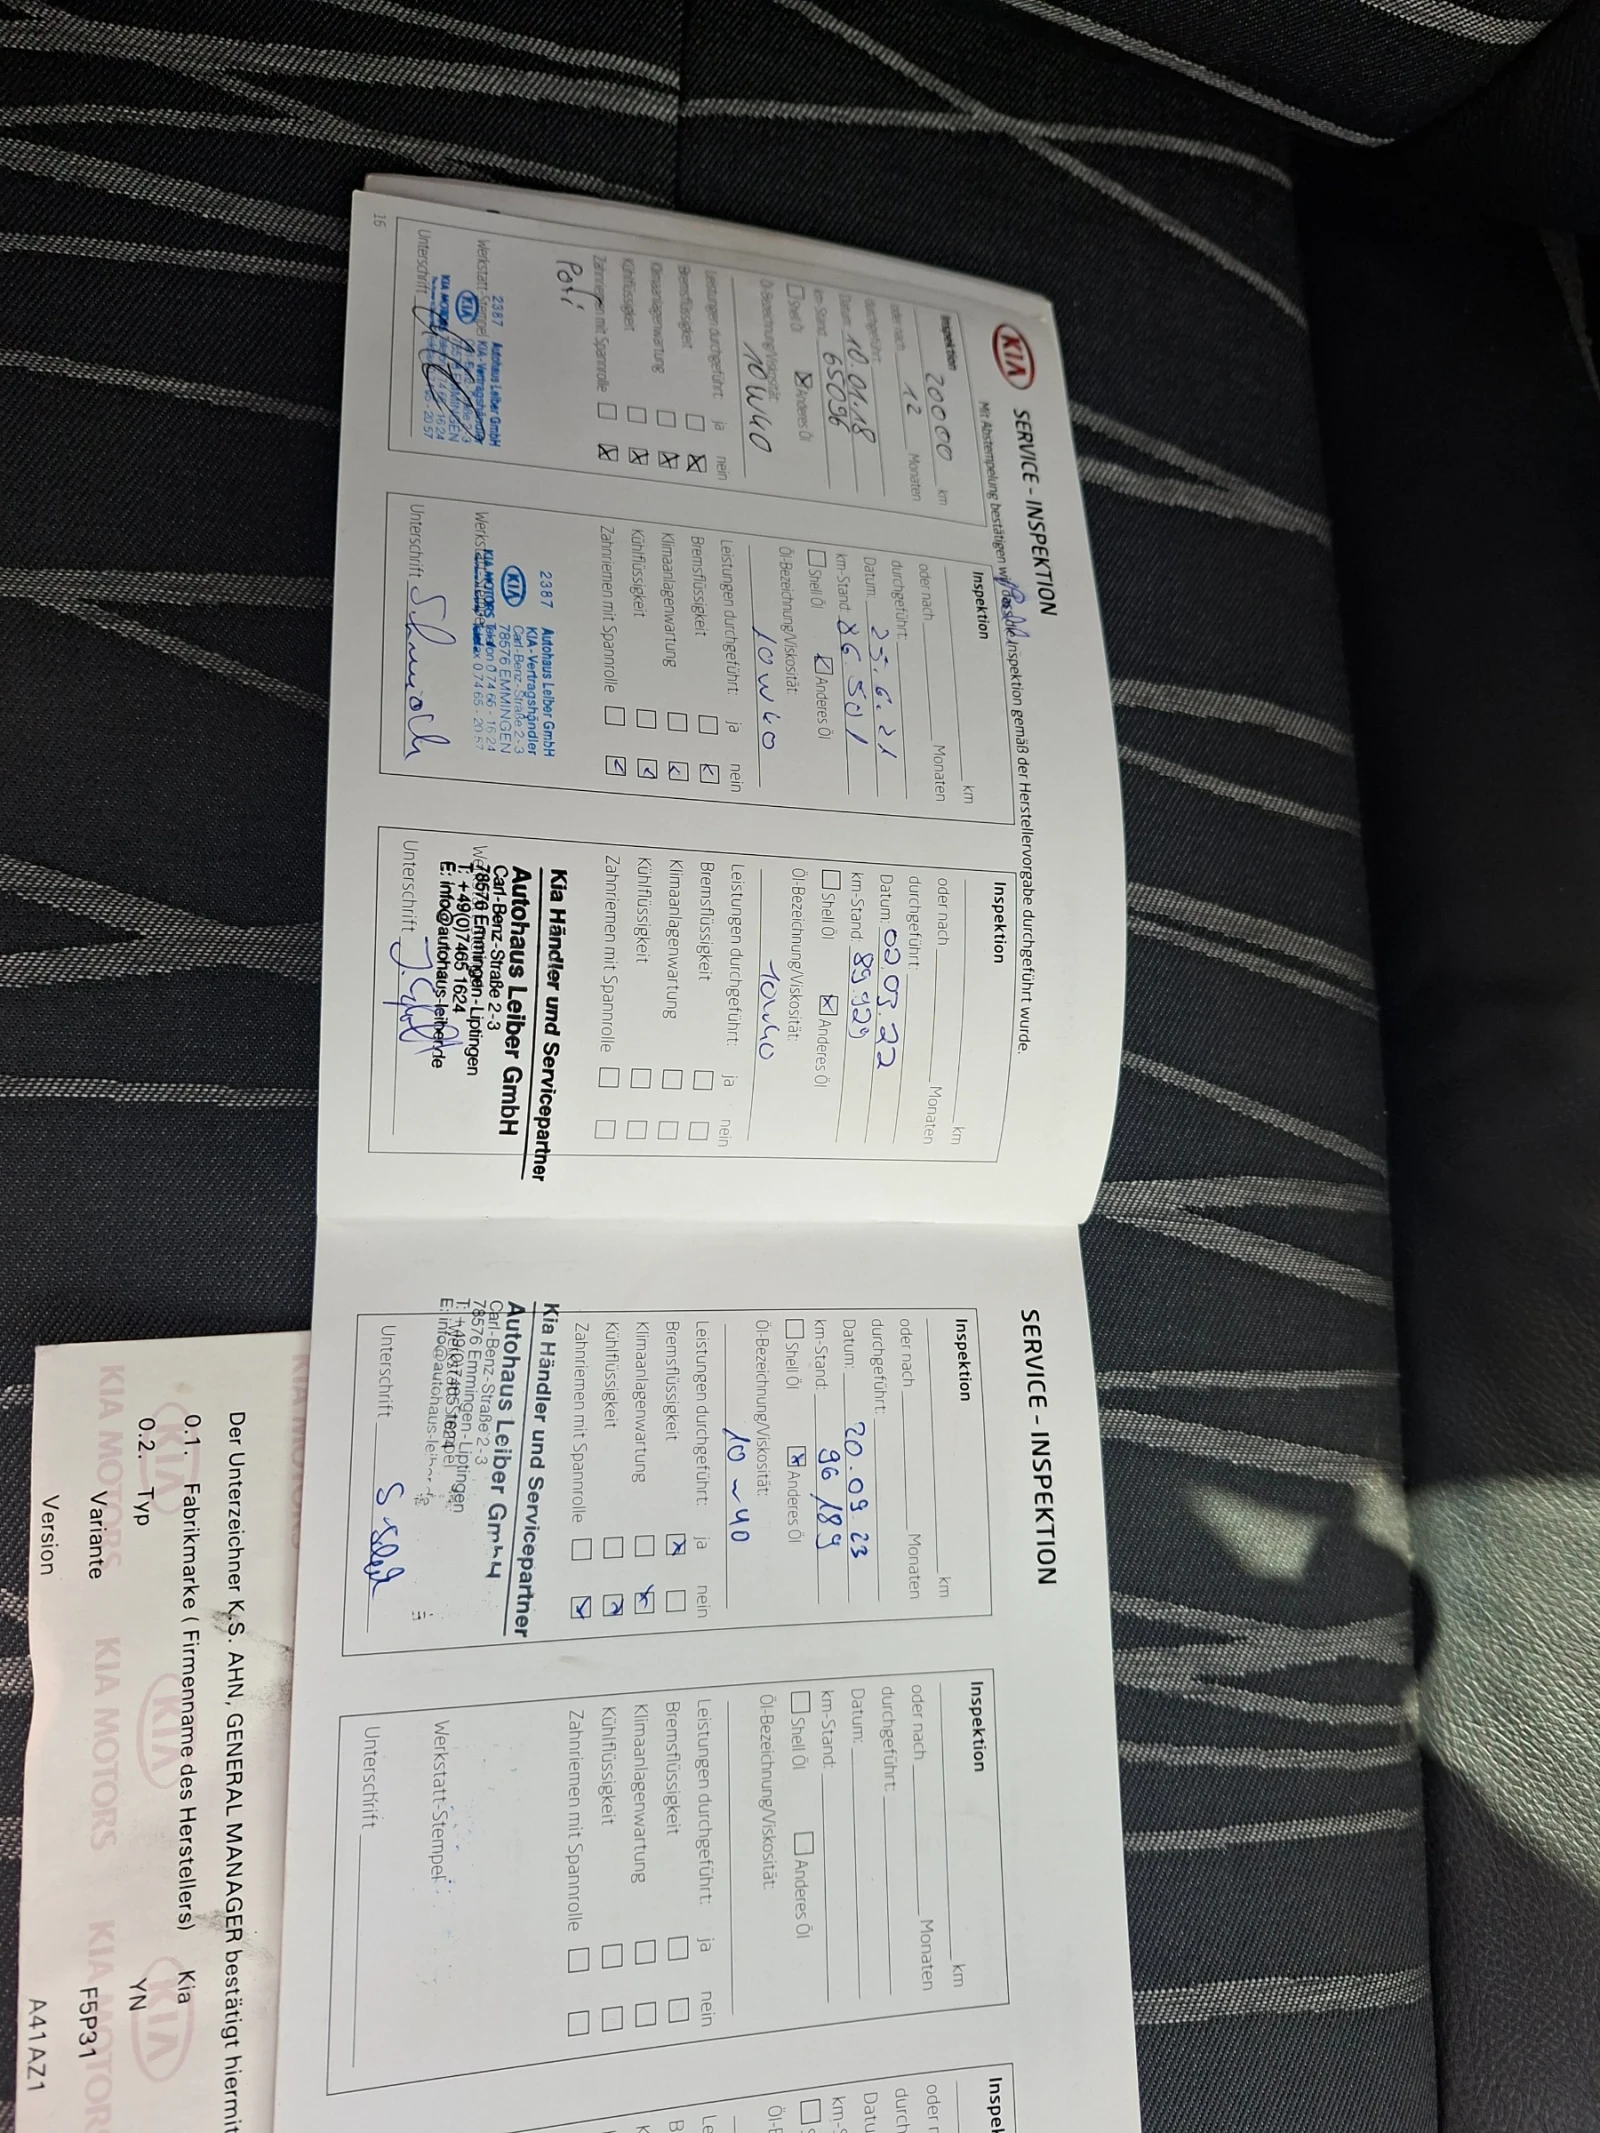 KIA SERVICE - INSPEKTION
Mit Abstempelung bestätigen wir, dass die Inspektion gemäß der Herstellervorgabe durchgeführt wurde.
Inspektion
20000 km
oder nach 12 Monaten
durchgeführt:
Datum: 10.01.18
km-Stand: 65096
Shell Öl Anderes Öl
Öl-Bezeichnung/Viskosität:
10W40
Leistungen durchgeführt: ja nein
Bremsflüssigkeit
Klimaanlagenwartung
Kühlflüssigkeit
Zahnriemen mit Spannrolle
2387 Autohaus Leiber GmbH
KIA-Vertragshändler
KIA
Werkstatt-Stempel
KIA MOTORS
Unterschrift
16
Inspektion
km
oder nach Monaten
durchgeführt:
Datum: 25.6.21
km-Stand: 86.501
Shell Öl Anderes Öl
Öl-Bezeichnung/Viskosität:
10W40
Leistungen durchgeführt: ja nein
Bremsflüssigkeit
Klimaanlagenwartung
Kühlflüssigkeit
Zahnriemen mit Spannrolle
2387 Autohaus Leiber GmbH
KIA-Vertragshändler
KIA Carl-Benz-Straße 2-3
78576 EMMINGEN
KIA MOTORS Telefon 07465 - 1624
Telefax 07465 - 2057
Unterschrift
Inspektion
km
oder nach Monaten
durchgeführt:
Datum: 02.03.22
km-Stand: 89.929
Shell Öl Anderes Öl
Öl-Bezeichnung/Viskosität:
10W40
Leistungen durchgeführt: ja nein
Bremsflüssigkeit
Klimaanlagenwartung
Kühlflüssigkeit
Zahnriemen mit Spannrolle
Kia Händler und Servicepartner
Autohaus Leiber GmbH
Carl-Benz-Straße 2-3
78576 Emmingen-Liptingen
T: +49(0)7465 1624
E: info@autohaus-leiber.de
Unterschrift
SERVICE - INSPEKTION
Inspektion
km
oder nach Monaten
durchgeführt:
Datum: 20.09.23
km-Stand: 96189
Shell Öl Anderes Öl
Öl-Bezeichnung/Viskosität:
10W40
Leistungen durchgeführt: ja nein
Bremsflüssigkeit
Klimaanlagenwartung
Kühlflüssigkeit
Zahnriemen mit Spannrolle
Kia Händler und Servicepartner
Autohaus Leiber GmbH
Carl-Benz-Straße 2-3
78576 Emmingen-Liptingen
T: +49(0)7465 1624
Werkstatt-Stempel
E: info@autohaus-leiber.de
Unterschrift
Inspektion
km
oder nach Monaten
durchgeführt:
Datum:
km-Stand:
Shell Öl Anderes Öl
Öl-Bezeichnung/Viskosität:
Leistungen durchgeführt: ja nein
Bremsflüssigkeit
Klimaanlagenwartung
Kühlflüssigkeit
Zahnriemen mit Spannrolle
Werkstatt-Stempel
Unterschrift
Inspek
oder n
durch
Datu
km-S
Öl-B
Le
B
K
Der Unterzeichner K.S. AHN, GENERAL MANAGER bestätigt hiermit
0.1. Fabrikmarke ( Firmenname des Herstellers) Kia
0.2. Typ YN
Variante F5P31
Version A41AZ1
KIA MOTORS KIA MOTORS KIA MOTORS